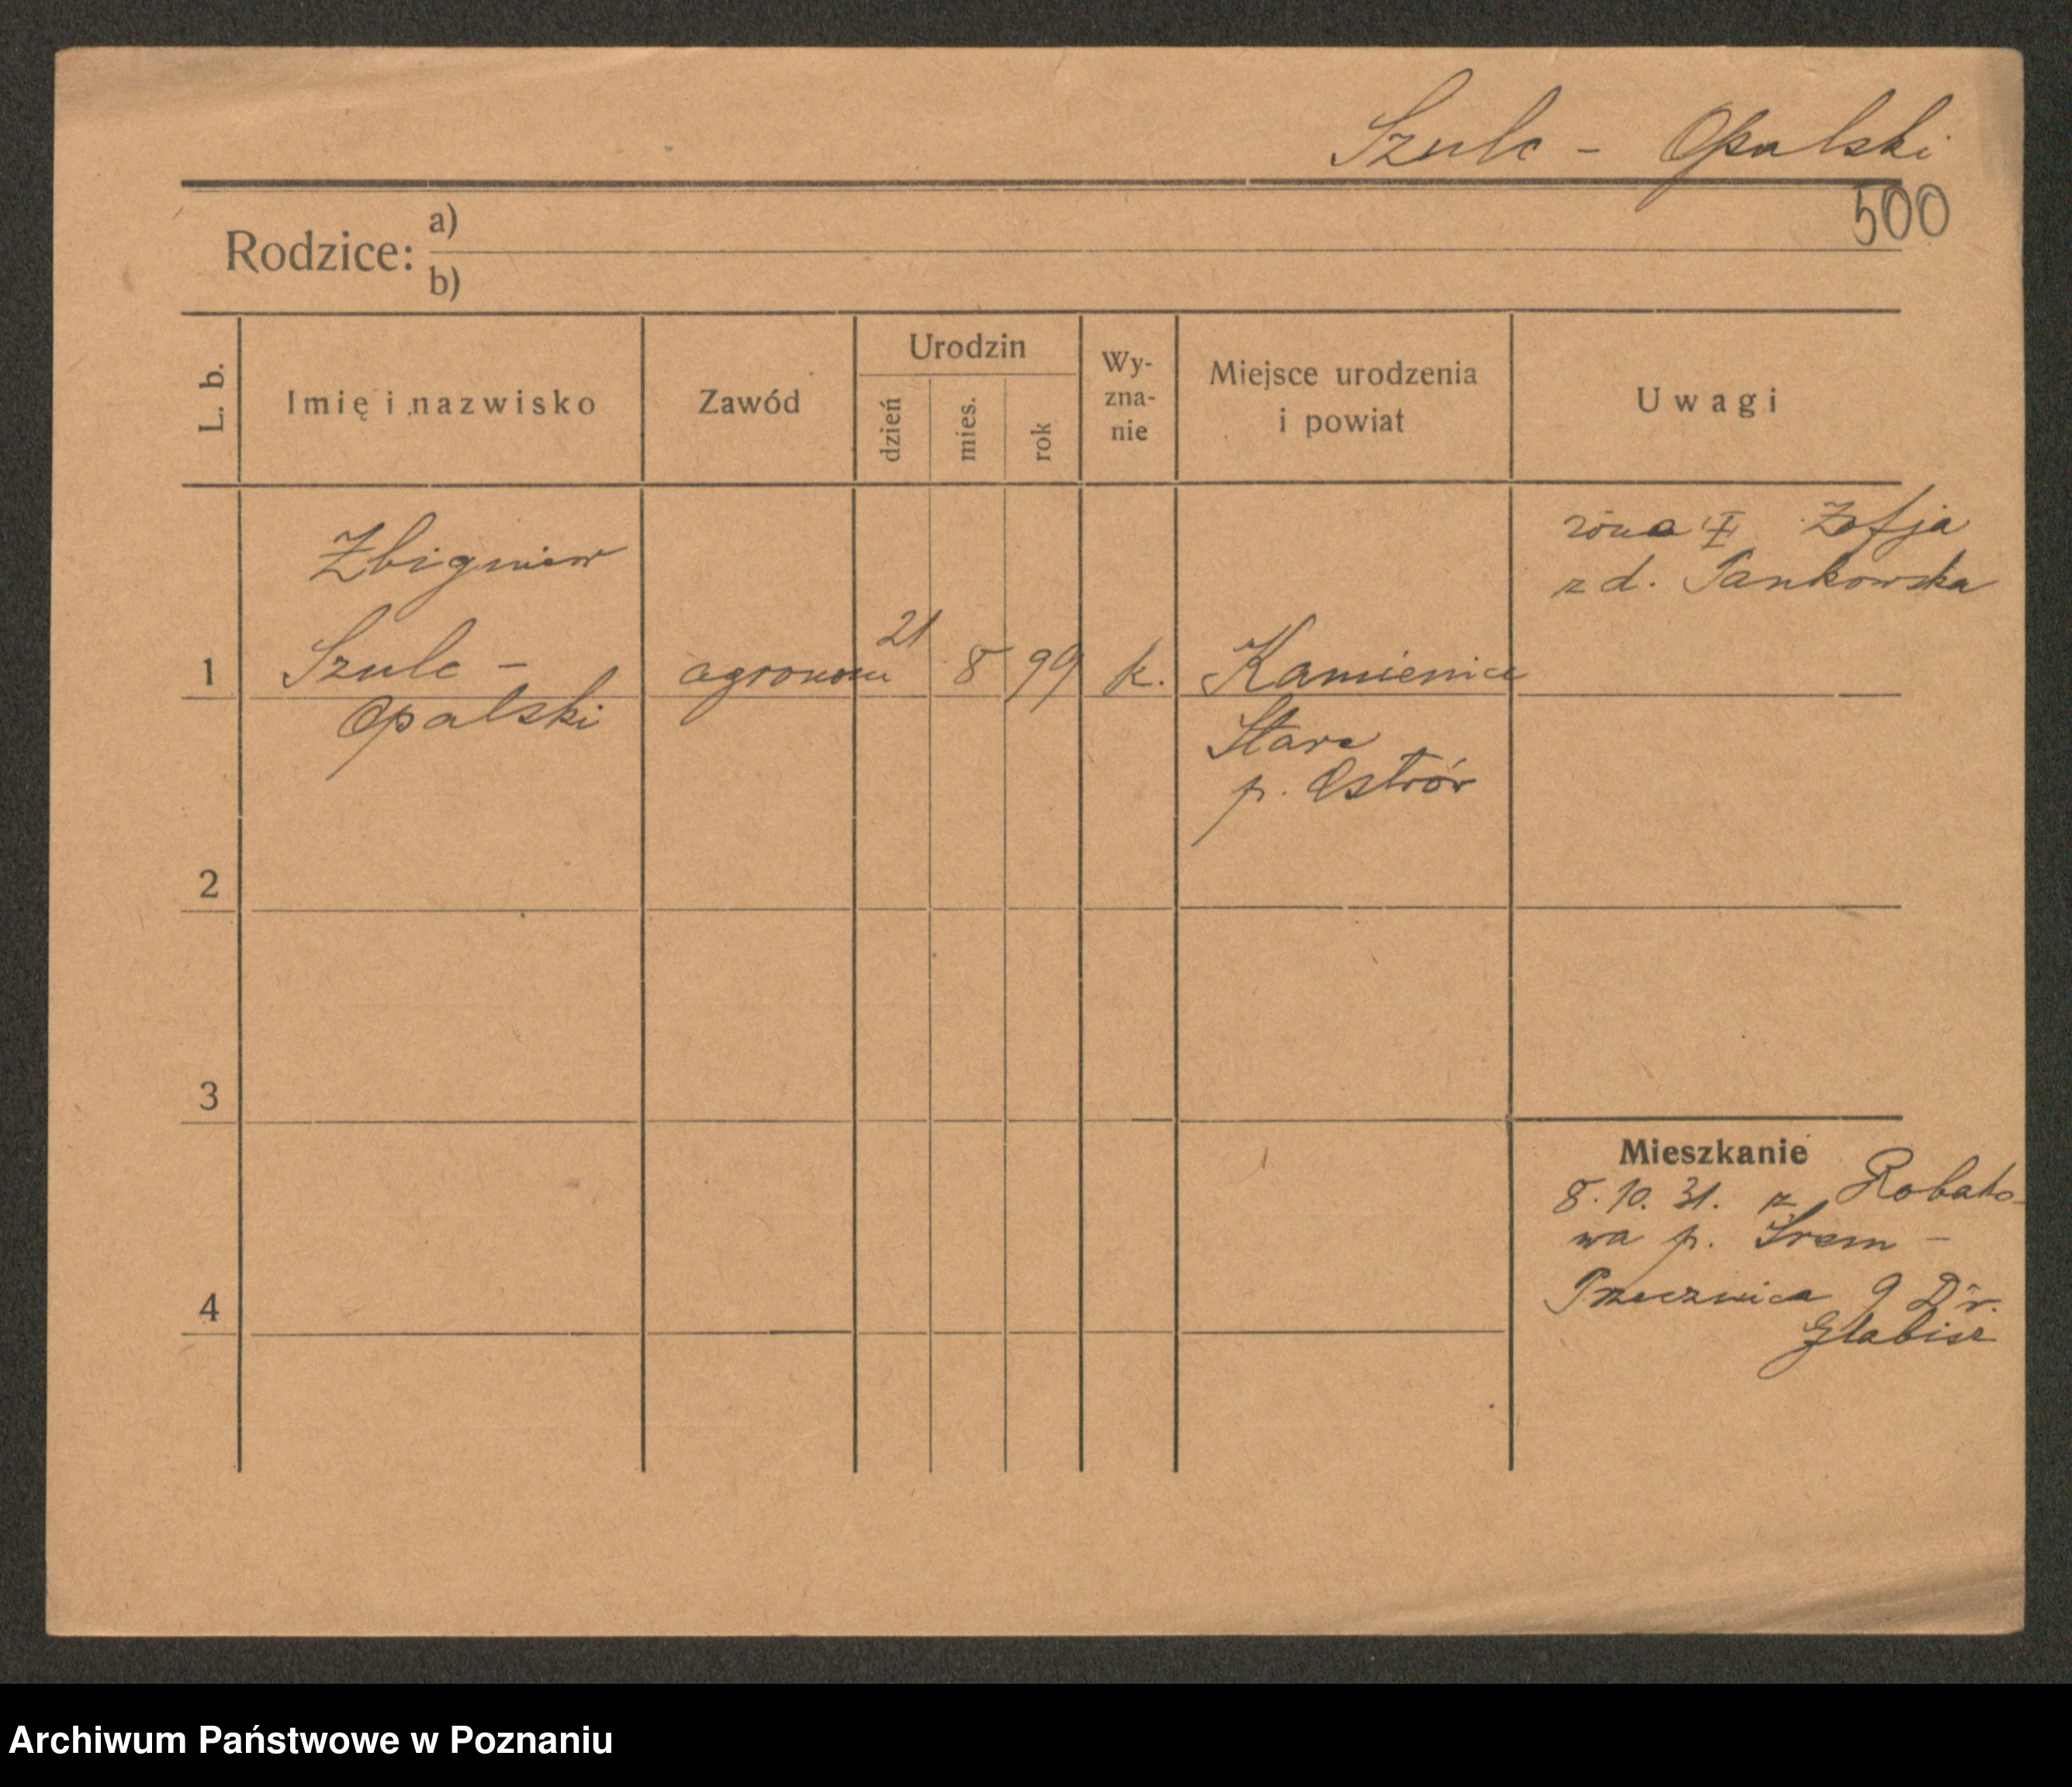 Szulc - Opalski
500
Rodzice:
a)
b)
L. b.
Imię i nazwisko
Zawód
Urodzin
dzień
mies.
rok
Wy-
zna-
nie
Miejsce urodzenia
i powiat
Uwagi
1
Zbigniew
Szulc -
Opalski
agronom
21
8
99
k.
Kamienice
Stare
p. Ostrów
żona II Zofja
z d. Pankowska
2
3
4
Mieszkanie
8. 10. 31. z Robako-
wa p. Śrem -
Przecznica 9 Dr.
Glabisz
Archiwum Państwowe w Poznaniu